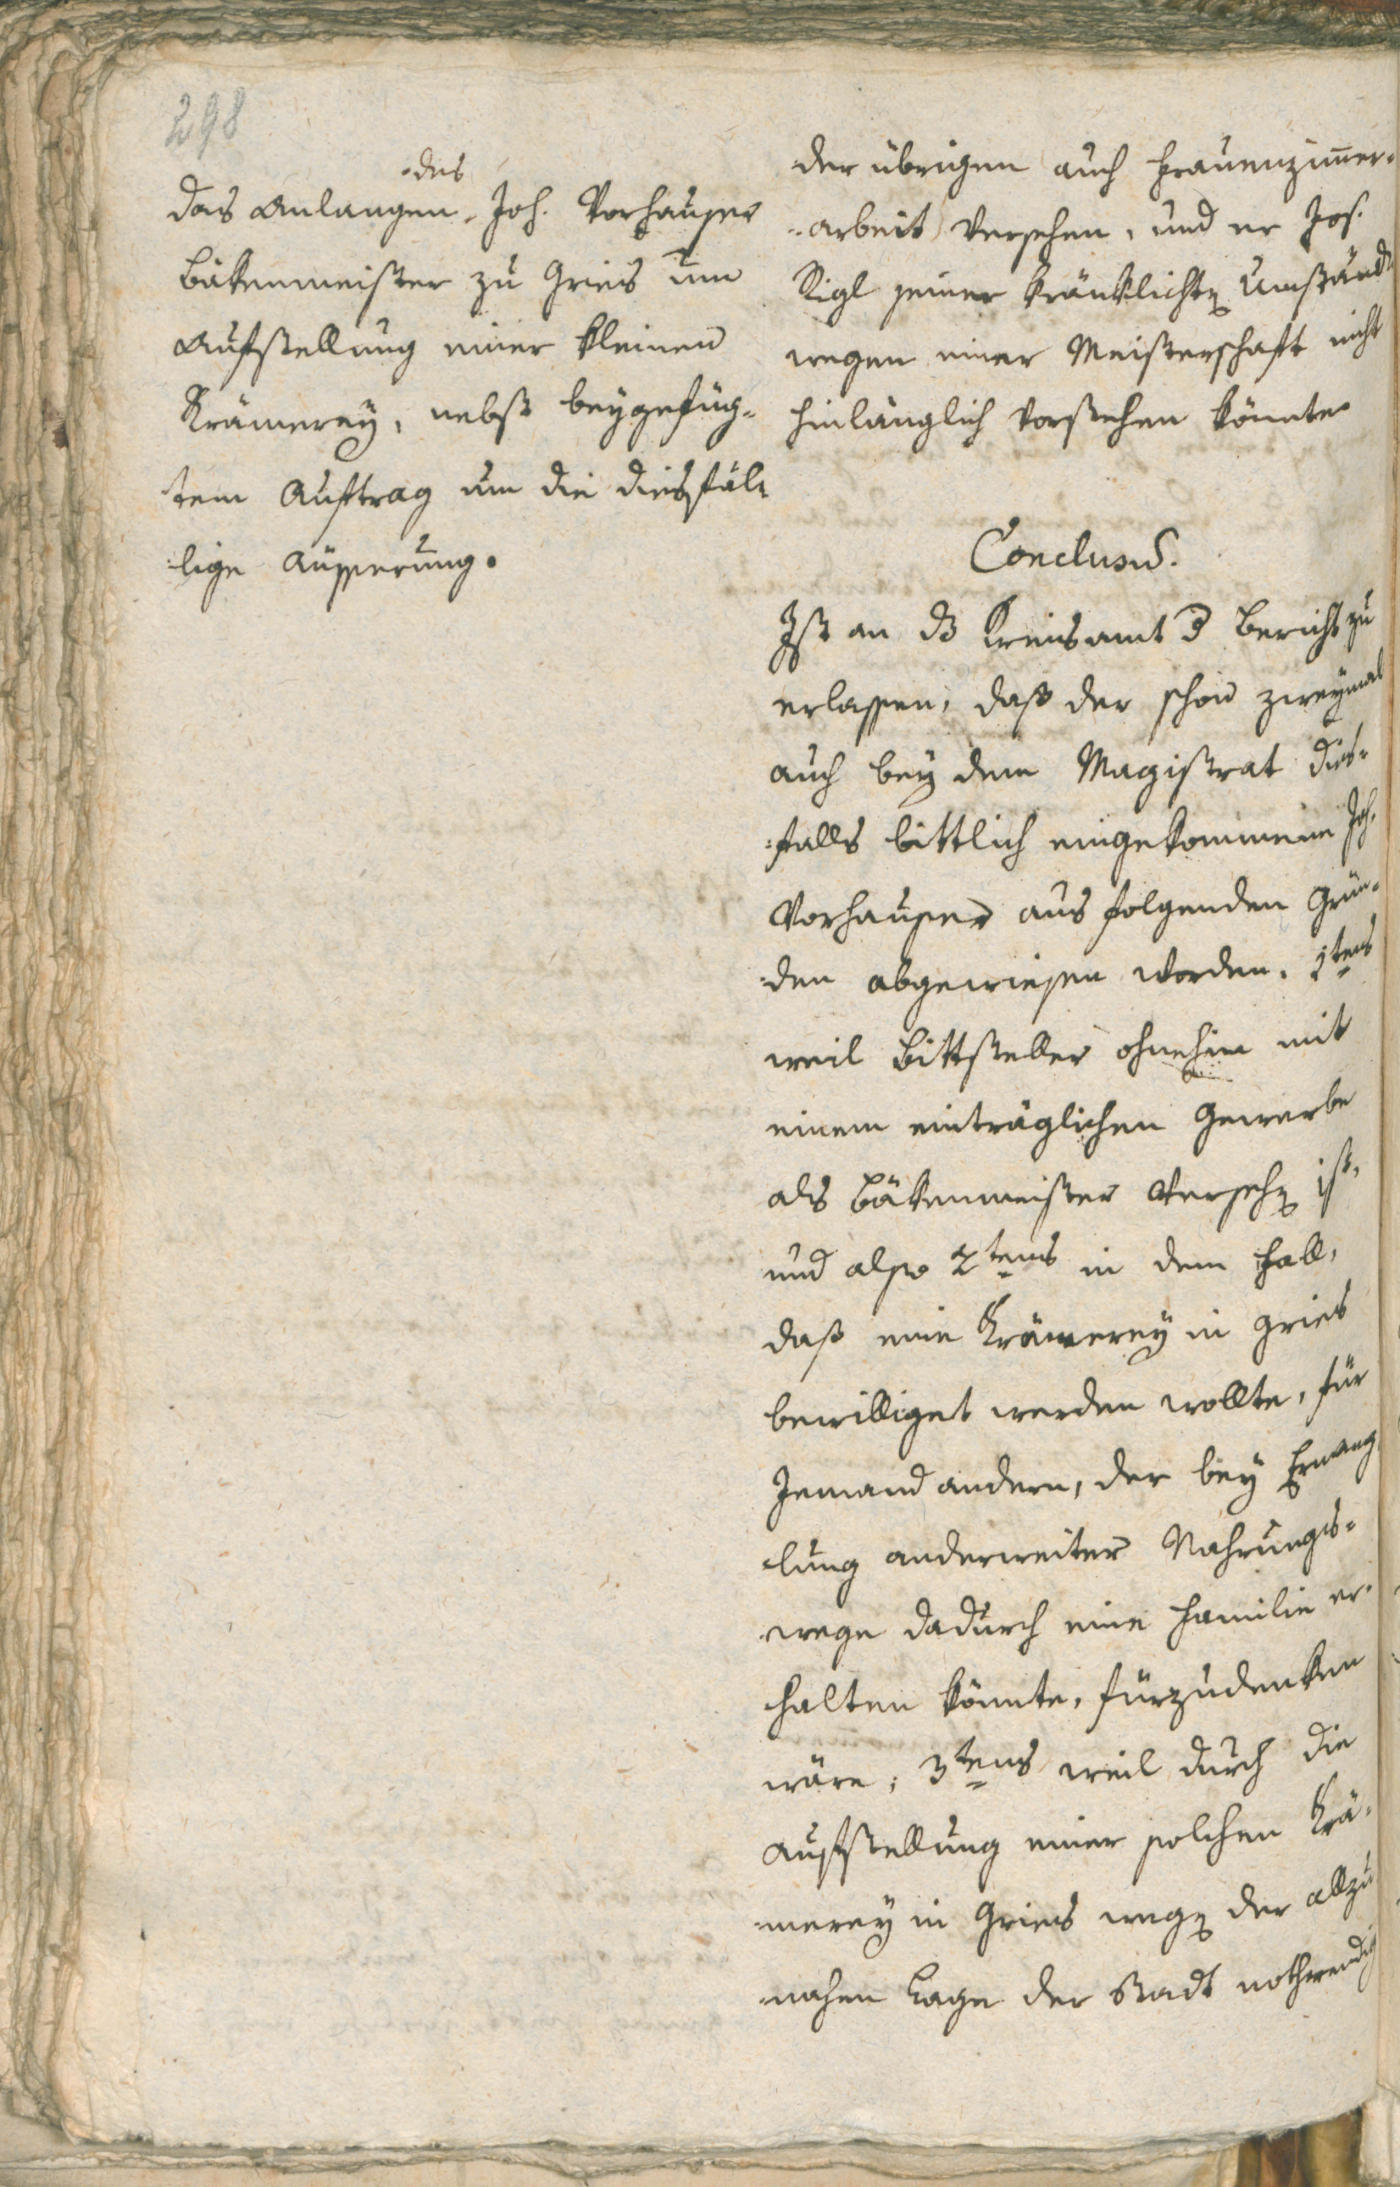 298
des
das Anlangen Joh. Vorhauser
Bäkenmeister zu Gries um
Aufstellung einer kleinen
Krämerey, nebst beygefüg-
tem Auftrag um die diesfäl-
lige Aüsserung.
der übrigen auch Frauenzimer-
arbeit versehen, und er Jos.
Rigl seiner kränklichen Umstände
wegen einer Meisterschaft nicht
hinlänglich vorstehen könnte
Conclusum.
Ist an das Kreisamt der Bericht zu
erlassen, daß der schon zweymal
auch bey dem Magistrat dies-
falls bittlich eingekommene Joh.
Vorhauser aus folgenden Grün-
den abgewiesen worden. 1tens
weil Bittsteller ohnehin mit
einem einträglichen Gewerbe
als Bäkenmeister versehen ist,
und also 2tens in dem Fall,
daß eine Krämerey in Gries
bewilliget werden wollte, für
Jemand andern, der bey Ermang
lung anderweiter Nahrungs-
wege dadurch eine Familie er-
halten könnte, fürzudenken
wäre; 3tens weil durch die
Aufstellung einer solchen Krä-
merey in Gries wegen der allzu
nahen Lage der Stadt nothwendig